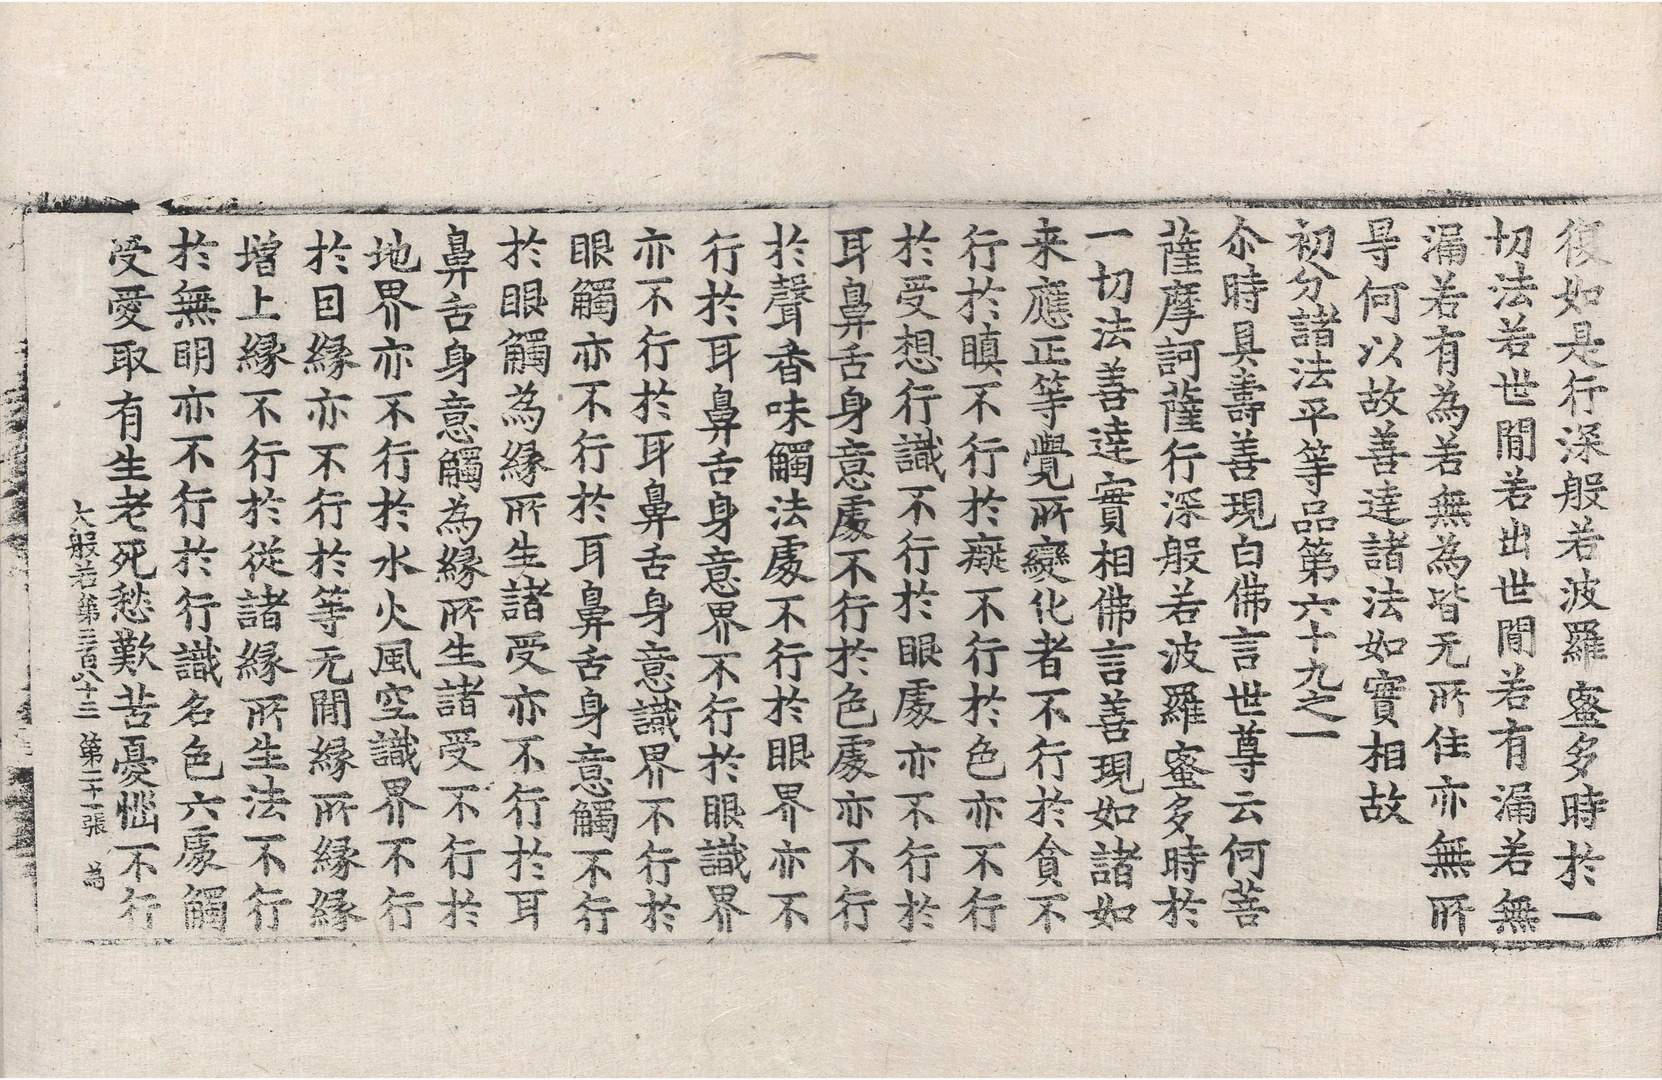 復如是行深般若波羅蜜多時於一
切法若世閒若出世閒若有漏若無
漏若有為若無為皆无所住亦無所
㝵何以故善達諸法如實相故
初分諸法平等品第六十九之一
尒時具壽善現白佛言世尊云何菩
薩摩訶薩行深般若波羅蜜多時於
一切法善達實相佛言善現如諸如
来應正等覺所變化者不行於貪不
行於瞋不行於癡不行於色亦不行
於受想行識不行於眼處亦不行於
耳鼻舌身意處不行於色處亦不行
於聲香味觸法處不行於眼界亦不
行於耳鼻舌身意界不行於眼識界
亦不行於耳鼻舌身意識界不行於
眼觸亦不行於耳鼻舌身意觸不行
於眼觸為縁所生諸受亦不行於耳
鼻舌身意觸為縁所生諸受不行於
地界亦不行於水火風空識界不行
於因縁亦不行於等无閒縁所縁縁
增上縁不行於從諸縁所生法不行
於無明亦不行於行識名色六處觸
受愛取有生老死愁歎苦憂惱不行
大般若第三百八十二 第二十一張 為